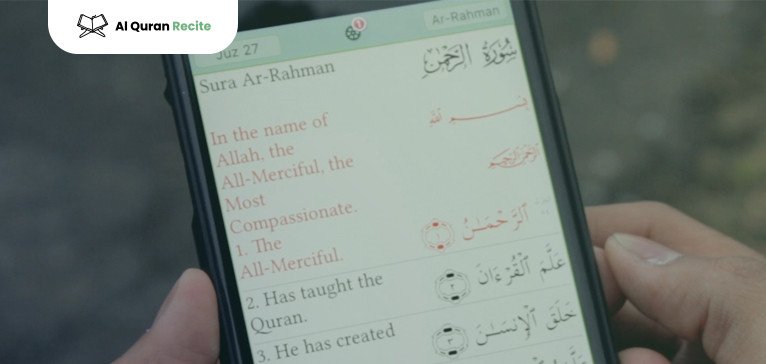 Al Quran Recite
Juz 27
1
Ar-Rahman
Sura Ar-Rahman
سُورَةُ الرَّحْمَٰن
In the name of
Allah, the
All-Merciful, the
Most
Compassionate.
بِسْمِ اللَّهِ
الرَّحْمَٰنِ الرَّحِيمِ
1. The
All-Merciful.
ٱلرَّحْمَـٰنُ ١
2. Has taught the
Quran.
عَلَّمَ ٱلْقُرْءَانَ ٢
3. He has created
خَلَقَ ٱلْإِنسَـٰنَ ٣